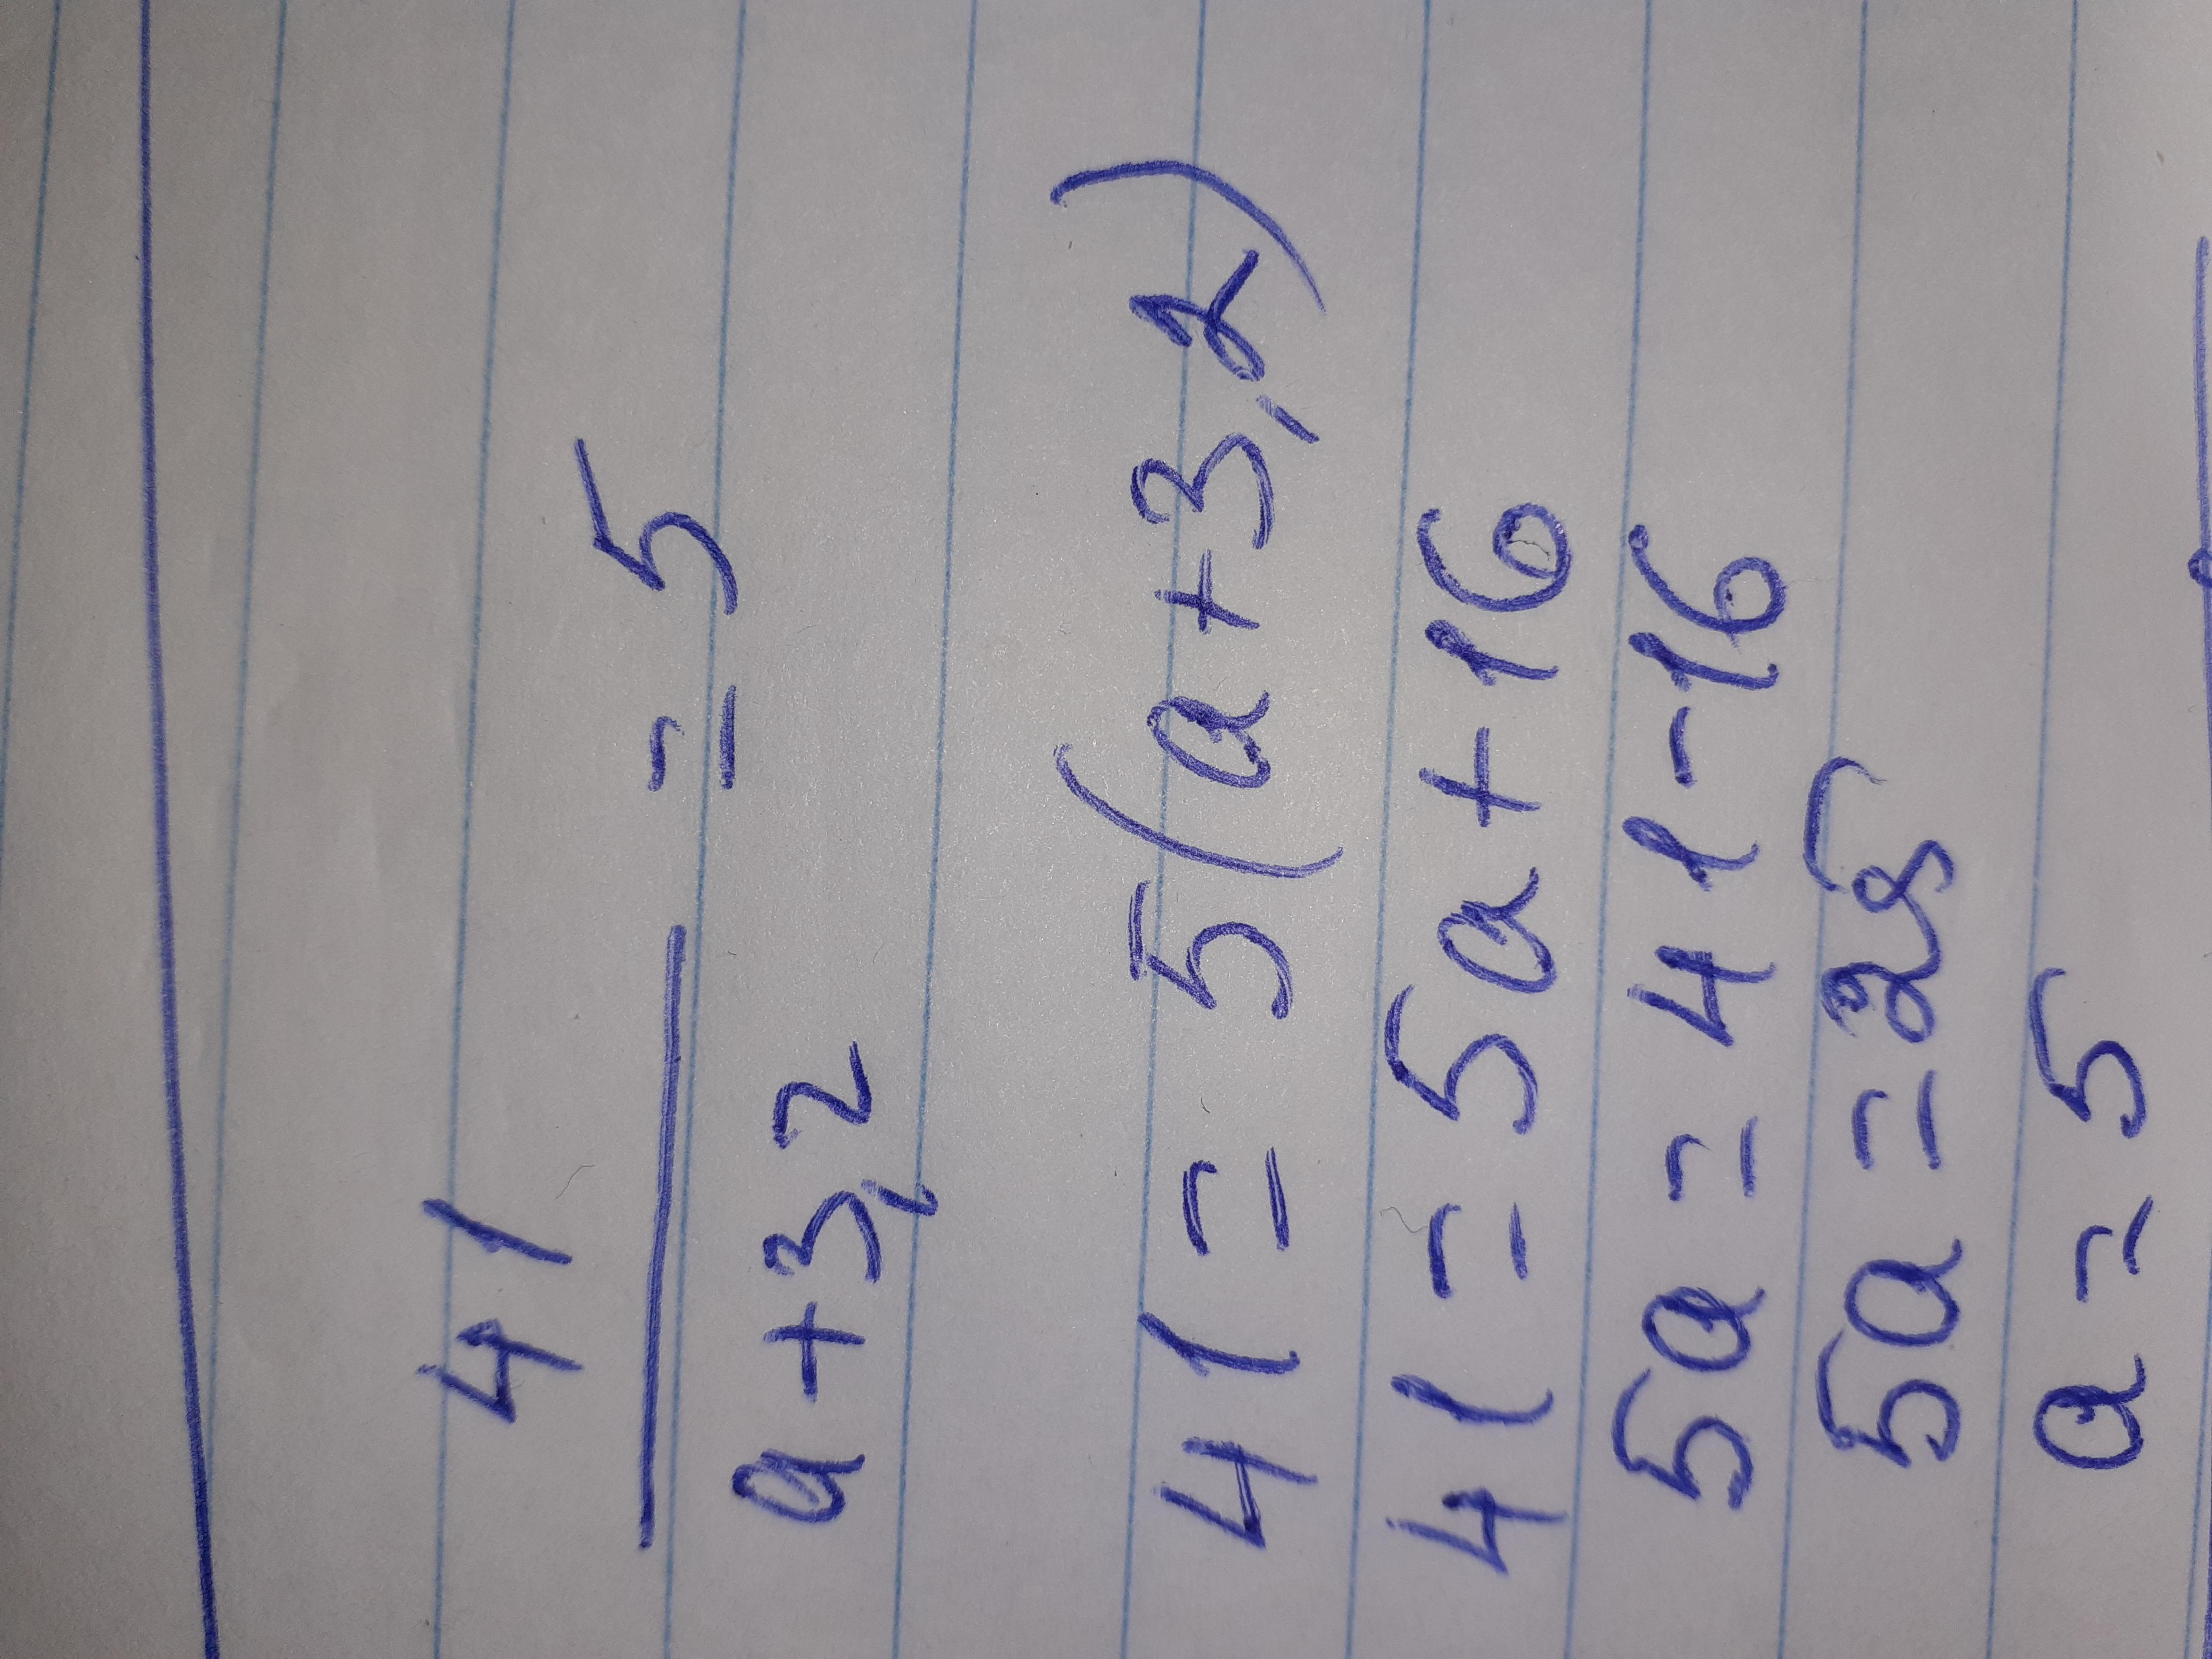 41
a+3,2 = 5
41 = 5(a+3,2)
41 = 5a+16
5a = 41-16
5a = 25
a = 5